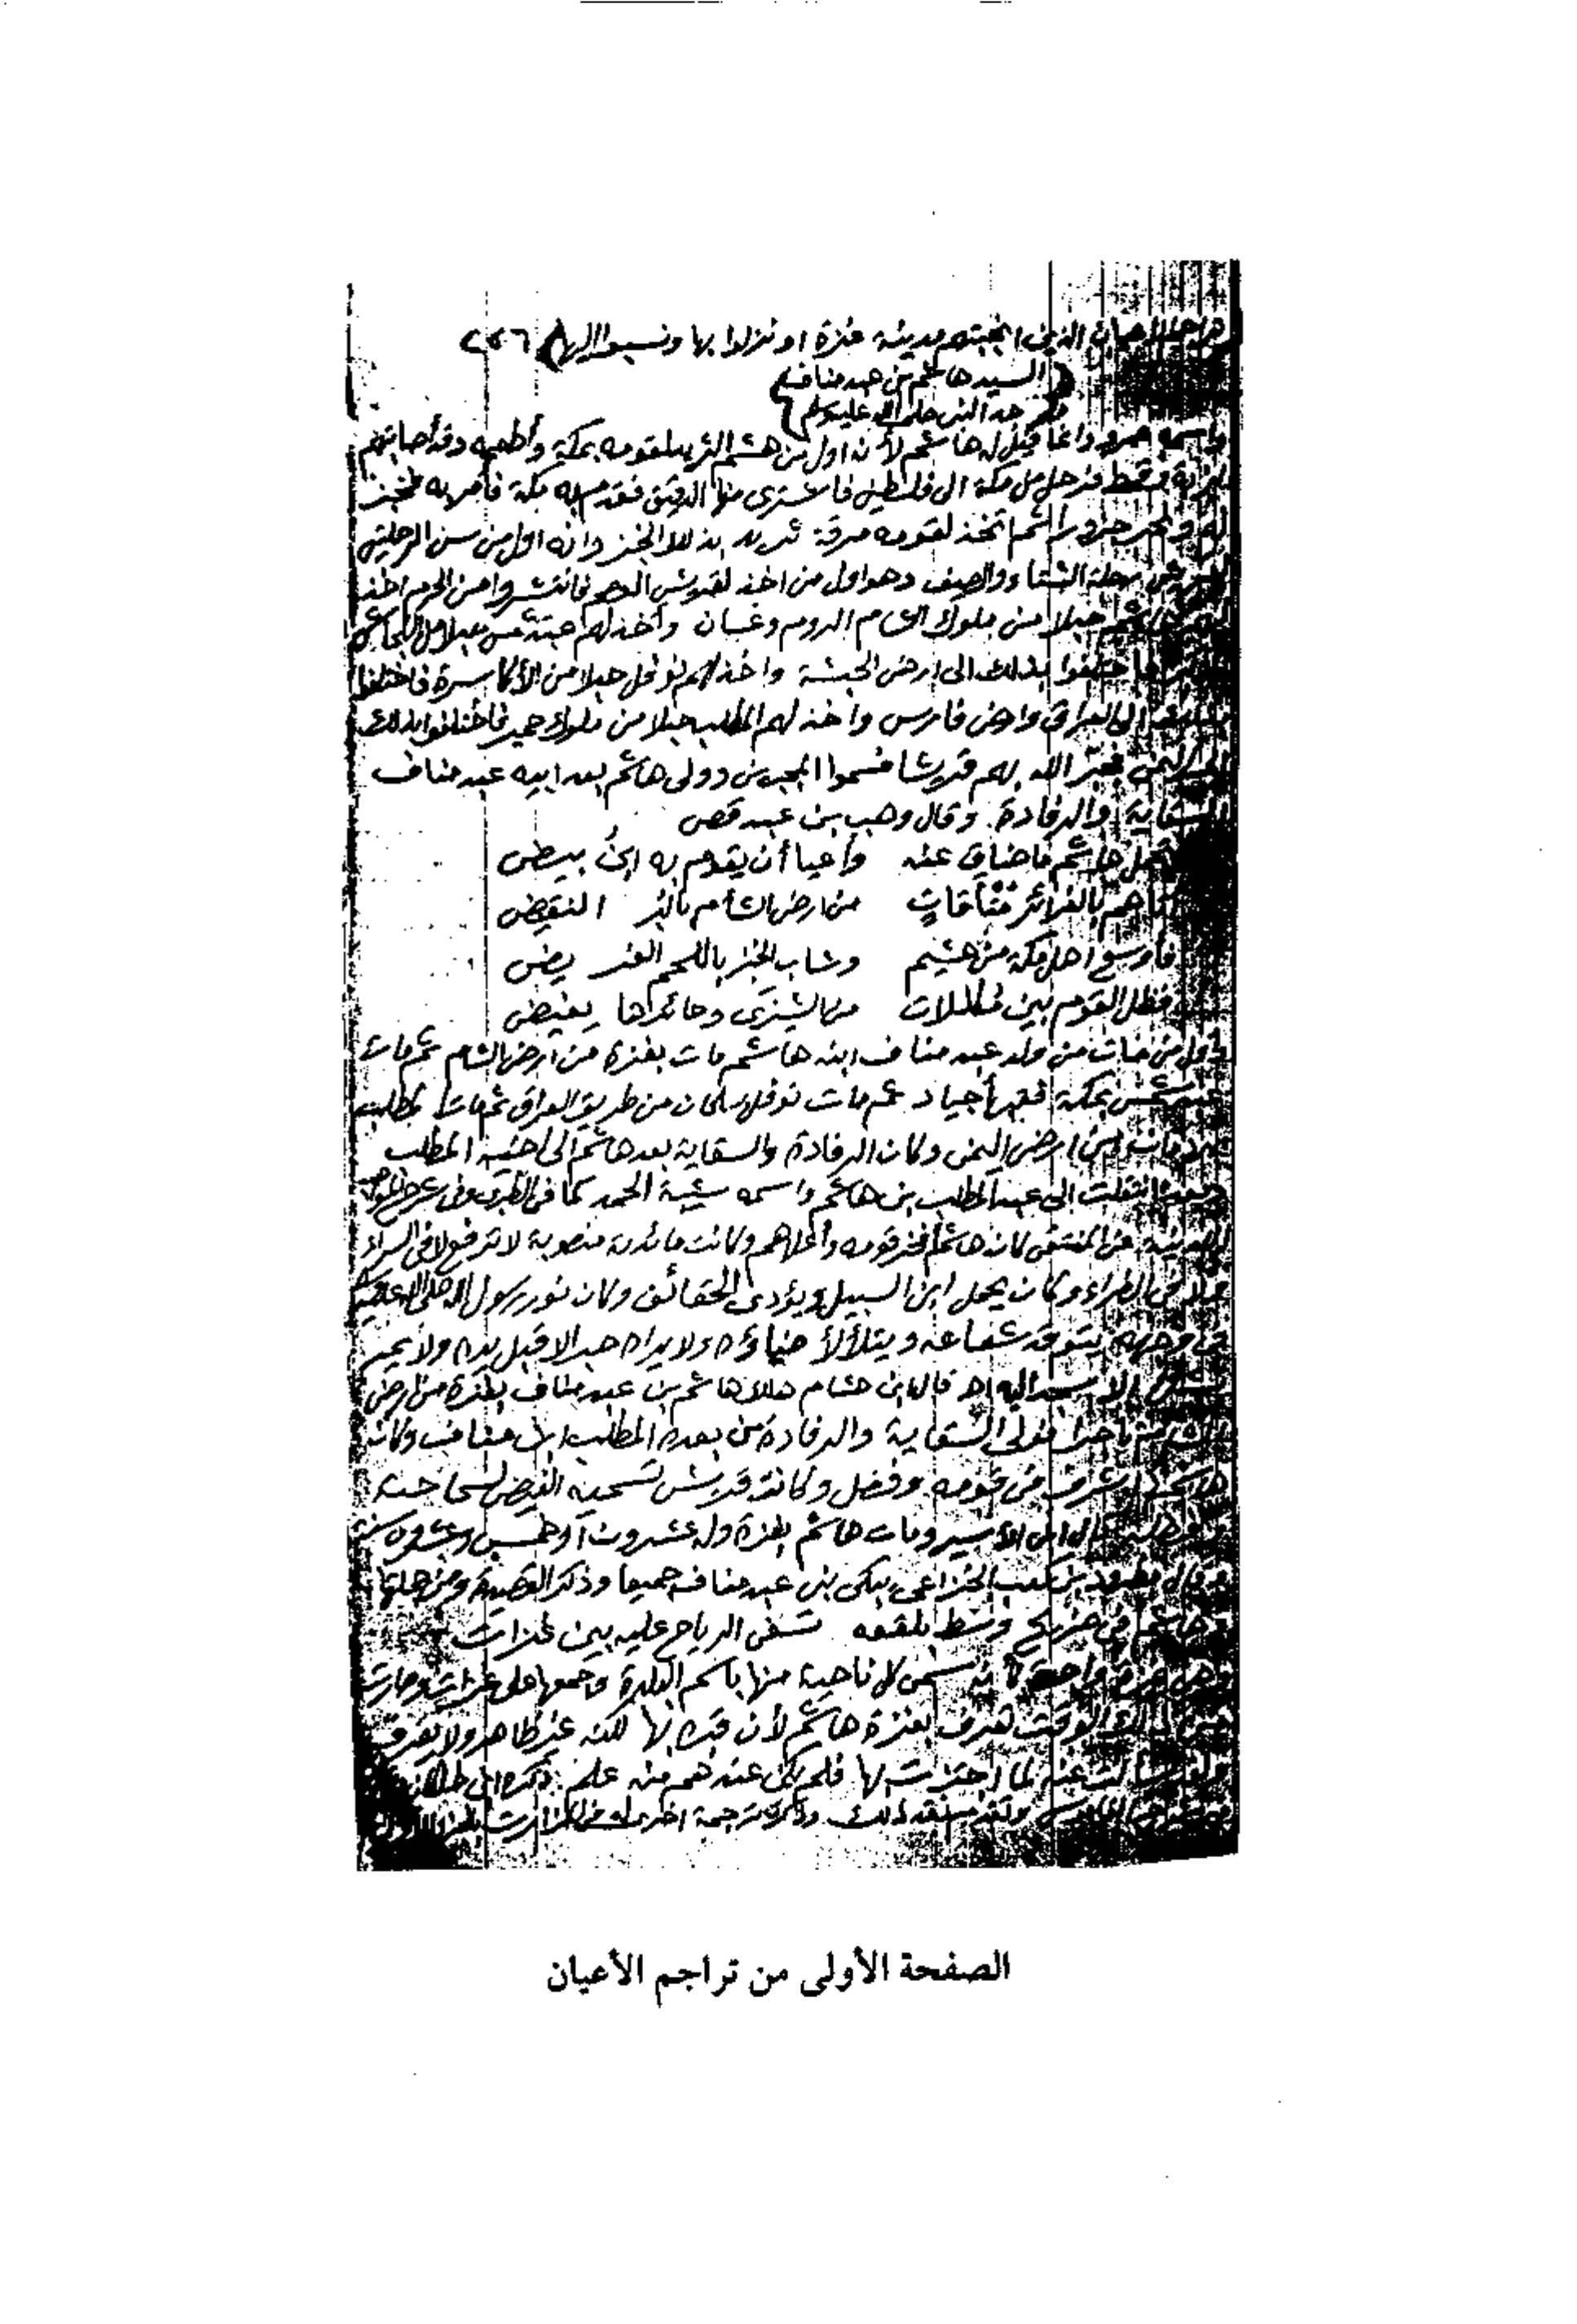 الأعيان الذين انجبتهم مدينة غزة او نزلوا بها ونسبوا اليها ٢٢٦
السيد هاشم بن عبد مناف
جد النبي صلى الله عليه وسلم
واسمه عمرو وانما قيل له هاشم لأنه اول من هشم الثريد لقومه بمكة وأطعمه وقد أصابتهم
فرحل من مكة الى فلسطين فاشترى منها الدقيق فقدم به مكة فأمر به فخبز
له ونحر جزورا ثم اتخذ لقومه مرقة ثريد بذلك الخبز وانه اول من سن الرحلتين
لقريش رحلة الشتاء والصيف وهو اول من اخذ لقريش العصم فانتشروا من الحرم اخذ
هاشم حبلا من ملوك الشام الروم وغسان وأخذ لهم عبد شمس حبلا من النجاشي
فاختلفوا بذلك الى ارض الحبشة واخذ لهم نوفل حبلا من الأكاسرة فاختلفوا
الى العراق وارض فارس واخذ لهم المطلب حبلا من ملوك حمير فاختلفوا بذلك
الى اليمن فجبر الله بهم قريشا فسموا المجبرين وولى هاشم بعد ابيه عبد مناف
السقاية والرفادة وقال وهب بن عبد قصي
تحمل هاشم ما ضاق عنه وأعيا أن يقوم به ابن بيض
أتاهم بالغرائر متأقات من ارض الشام بالبر النفيض
فأوسع اهل مكة من هشيم وشاب الخبز باللحم الغريض
فظل القوم بين مكللات من الشيزى وحائرها يفيض
واول من مات من ولد عبد مناف ابنه هاشم مات بغزة من ارض الشام ثم مات
عبد شمس بمكة فقبر بأجياد ثم مات نوفل بسلمان من طريق العراق ثم مات المطلب
من ارض اليمن وكان الرفادة والسقاية بعد هاشم الى اخيه المطلب
انتقلت الى عبد المطلب بن هاشم واسمه شيبة الحمد كما في الطبري وفي شرح المواهب
اللدنية عن المنتقى كان هاشم أفخر قومه وأعلاهم وكانت مائدته منصوبة لا ترفع لا في السراء
ولا في الضراء وكان يحمل ابن السبيل ويؤدي الحقائق وكان نور رسول الله صلى الله عليه وسلم
في وجهه يتوقد شعاعه ويتلألأ ضياؤه ولا يراه حبر الا قبل يده ولا يمر
الا سجد اليه اهـ قال ابن هشام هلك هاشم بن عبد مناف بغزة من ارض
الشام تاجرا فولى السقاية والرفادة من بعده المطلب بن عبد مناف وكان
شرف في قومه وفضل وكانت قريش تسميه الفيض لسماحته
قال ابن الأثير ومات هاشم بغزة وله عشرون او خمس وعشرون سنة
وقال مطرود بن كعب الخزاعي يبكي بني عبد مناف جميعا وذكر القصيدة ومن جملتها
وهاشم في ضريح وسط بلقعة تسفي الرياح عليه بين غزات
وهي غزة واحدة كأنه سمى كل ناحية منها باسم البلدة وجمعها على غزات وصارت
من ذلك الوقت تعرف بغزة هاشم لأن قبره بها لكنه غير ظاهر ولا يعرف
ولقد سألت عنه لما اجتزت بها فلم يكن عندهم منه علم ذكره ابن خلكان
وتقدم ذلك وذكر ترجمة اخرى
الصفحة الأولى من تراجم الأعيان